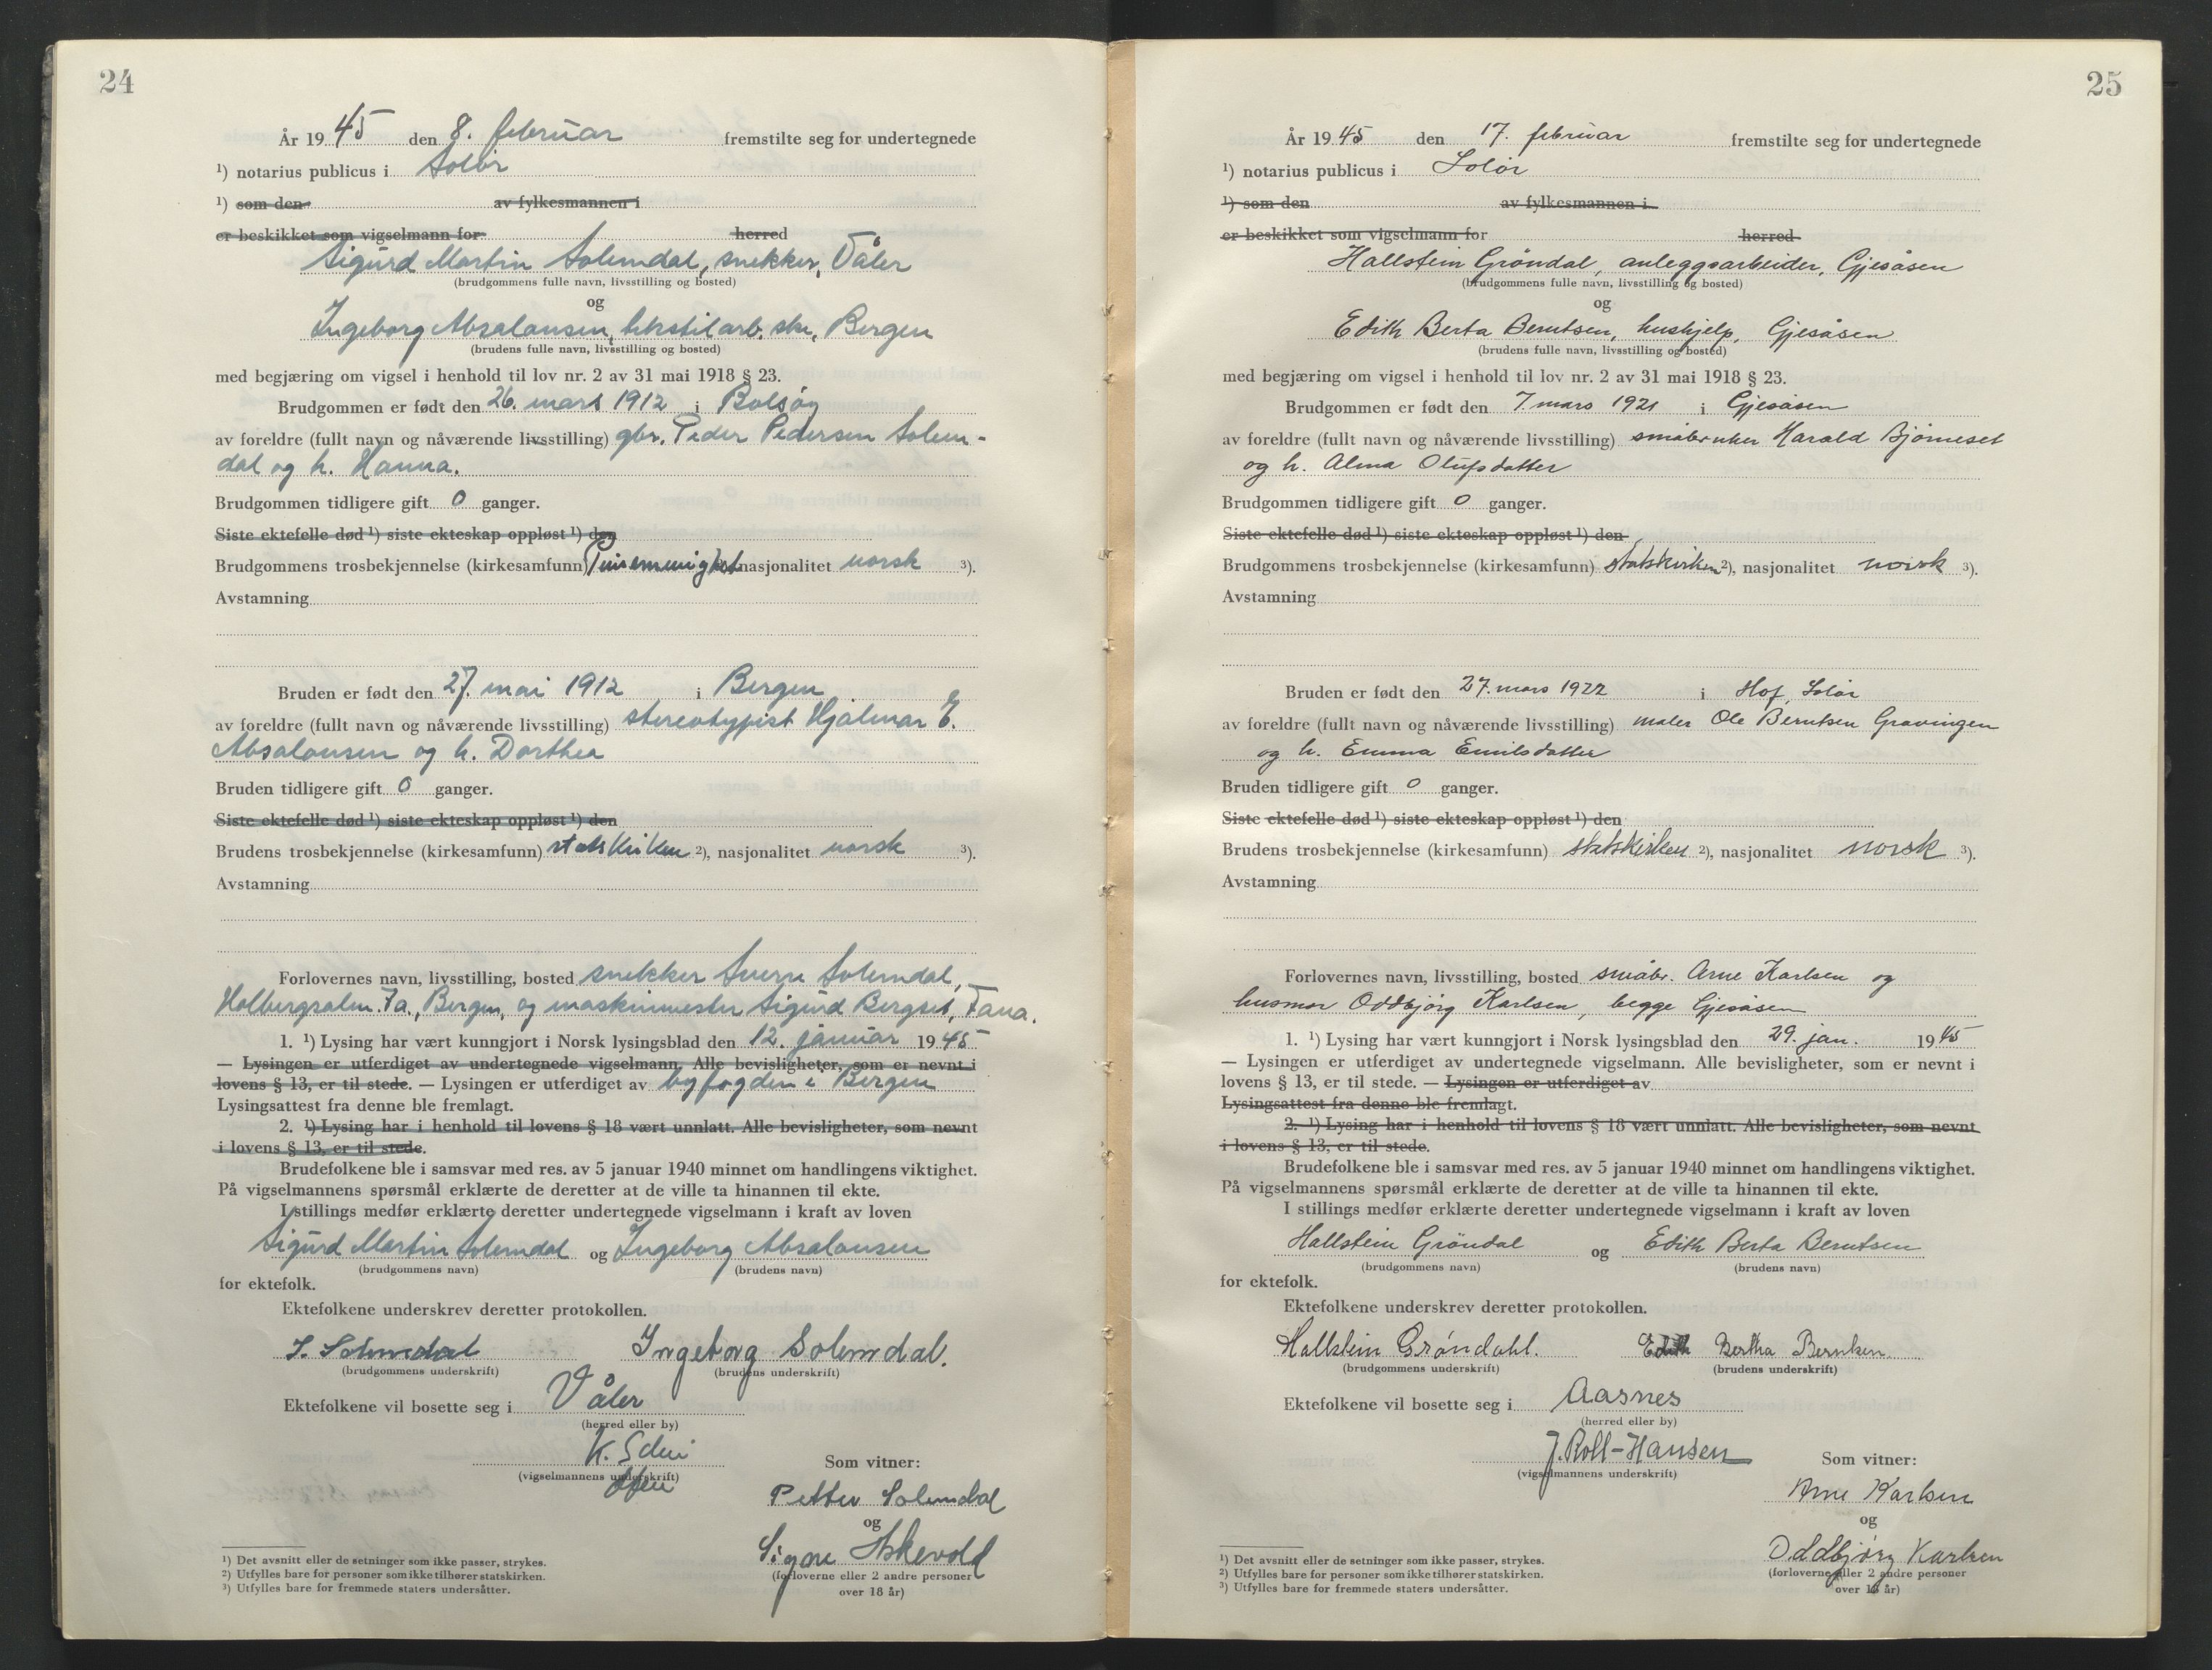 24
År 1945 den 8. februar fremstilte seg for undertegnede
¹) notarius publicus i Solør
¹) som den av fylkesmannen i
er beskikket som vigselmann for herred
Sigurd Martin Solemdal, snekker, Våler
(brudgommens fulle navn, livsstilling og bosted)
og
Ingeborg Absalonsen, tekstilarb.ske, Bergen
(brudens fulle navn, livsstilling og bosted)
med begjæring om vigsel i henhold til lov nr. 2 av 31 mai 1918 § 23.
Brudgommen er født den 26. mars 1912 i Bolsøy
av foreldre (fullt navn og nåværende livsstilling) gbr. Peder Pedersen Solem-
dal og h. Hanna.
Brudgommen tidligere gift 0 ganger.
Siste ektefelle død ¹) siste ekteskap oppløst ¹) den
Brudgommens trosbekjennelse (kirkesamfunn) Pinsemenighet nasjonalitet norsk ³).
Avstamning
Bruden er født den 27. mai 1912 i Bergen
av foreldre (fullt navn og nåværende livsstilling) stereotypist Hjalmar E.
Absalonsen og h. Dorthea
Bruden tidligere gift 0 ganger.
Siste ektefelle død ¹) siste ekteskap oppløst ¹) den
Brudens trosbekjennelse (kirkesamfunn) statskirken ²), nasjonalitet norsk ³).
Avstamning
Forlovernes navn, livsstilling, bosted snekker Sverre Solemdal,
Holbergsalm. 7a., Bergen, og maskinmester Sigurd Bergset, Fana.
1. ¹) Lysing har vært kunngjort i Norsk lysingsblad den 12. januar 1945
— Lysingen er utferdiget av undertegnede vigselmann. Alle bevisligheter, som er nevnt i
lovens § 13, er til stede. — Lysingen er utferdiget av byfogden i Bergen
Lysingsattest fra denne ble fremlagt.
2. ¹) Lysing har i henhold til lovens § 18 vært unnlatt. Alle bevisligheter, som nevnt
i lovens § 13, er til stede.
Brudefolkene ble i samsvar med res. av 5 januar 1940 minnet om handlingens viktighet.
På vigselmannens spørsmål erklærte de deretter at de ville ta hinannen til ekte.
I stillings medfør erklærte deretter undertegnede vigselmann i kraft av loven
Sigurd Martin Solemdal og Ingeborg Absalonsen
(brudgommens navn) (brudens navn)
for ektefolk.
Ektefolkene underskrev deretter protokollen.
S. Solemdal Ingeborg Solemdal.
(brudgommens underskrift) (brudens underskrift)
Ektefolkene vil bosette seg i Våler
(herred eller by)
K. Schei
(vigselmannens underskrift) Som vitner:
Petter Solemdal
og
Signe Askevold
(forloverne eller 2 andre personer
over 18 år)
¹) Det avsnitt eller de setninger som ikke passer, strykes.
²) Utfylles bare for personer som ikke tilhører statskirken.
³) Utfylles bare for fremmede staters undersåtter.
25
År 1945 den 17. februar fremstilte seg for undertegnede
¹) notarius publicus i Solør
¹) som den av fylkesmannen i
er beskikket som vigselmann for herred
Hallstein Gröndal, anleggsarbeider, Gjesåsen
(brudgommens fulle navn, livsstilling og bosted)
og
Edith Berta Berntsen, hushjelp, Gjesåsen
(brudens fulle navn, livsstilling og bosted)
med begjæring om vigsel i henhold til lov nr. 2 av 31 mai 1918 § 23.
Brudgommen er født den 7 mars 1921 i Gjesåsen
av foreldre (fullt navn og nåværende livsstilling) småbruker Harald Bjørneset
og h. Alma Olufsdatter
Brudgommen tidligere gift 0 ganger.
Siste ektefelle død ¹) siste ekteskap oppløst ¹) den
Brudgommens trosbekjennelse (kirkesamfunn) statskirken ²), nasjonalitet norsk ³).
Avstamning
Bruden er født den 27. mars 1922 i Hof, Solør
av foreldre (fullt navn og nåværende livsstilling) maler Ole Berntsen Gravingen
og h. Emma Emilsdatter
Bruden tidligere gift 0 ganger.
Siste ektefelle død ¹) siste ekteskap oppløst ¹) den
Brudens trosbekjennelse (kirkesamfunn) statskirken ²), nasjonalitet norsk ³).
Avstamning
Forlovernes navn, livsstilling, bosted småbr. Arne Karlsen og
husmor Oddbjørg Karlsen, begge Gjesåsen
1. ¹) Lysing har vært kunngjort i Norsk lysingsblad den 29. jan. 1945
— Lysingen er utferdiget av undertegnede vigselmann. Alle bevisligheter, som er nevnt i
lovens § 13, er til stede. — Lysingen er utferdiget av
Lysingsattest fra denne ble fremlagt.
2. ¹) Lysing har i henhold til lovens § 18 vært unnlatt. Alle bevisligheter, som nevnt
i lovens § 13, er til stede.
Brudefolkene ble i samsvar med res. av 5 januar 1940 minnet om handlingens viktighet.
På vigselmannens spørsmål erklærte de deretter at de ville ta hinannen til ekte.
I stillings medfør erklærte deretter undertegnede vigselmann i kraft av loven
Hallstein Gröndal og Edith Berta Berntsen
(brudgommens navn) (brudens navn)
for ektefolk.
Ektefolkene underskrev deretter protokollen.
Hallstein Grøndahl. Edith Bertha Berntsen.
(brudgommens underskrift) (brudens underskrift)
Ektefolkene vil bosette seg i Aasnes
(herred eller by)
J. Roll-Hansen
(vigselmannens underskrift) Som vitner:
Arne Karlsen
og
Oddbjørg Karlsen
(forloverne eller 2 andre personer
over 18 år)
¹) Det avsnitt eller de setninger som ikke passer, strykes.
²) Utfylles bare for personer som ikke tilhører statskirken.
³) Utfylles bare for fremmede staters undersåtter.